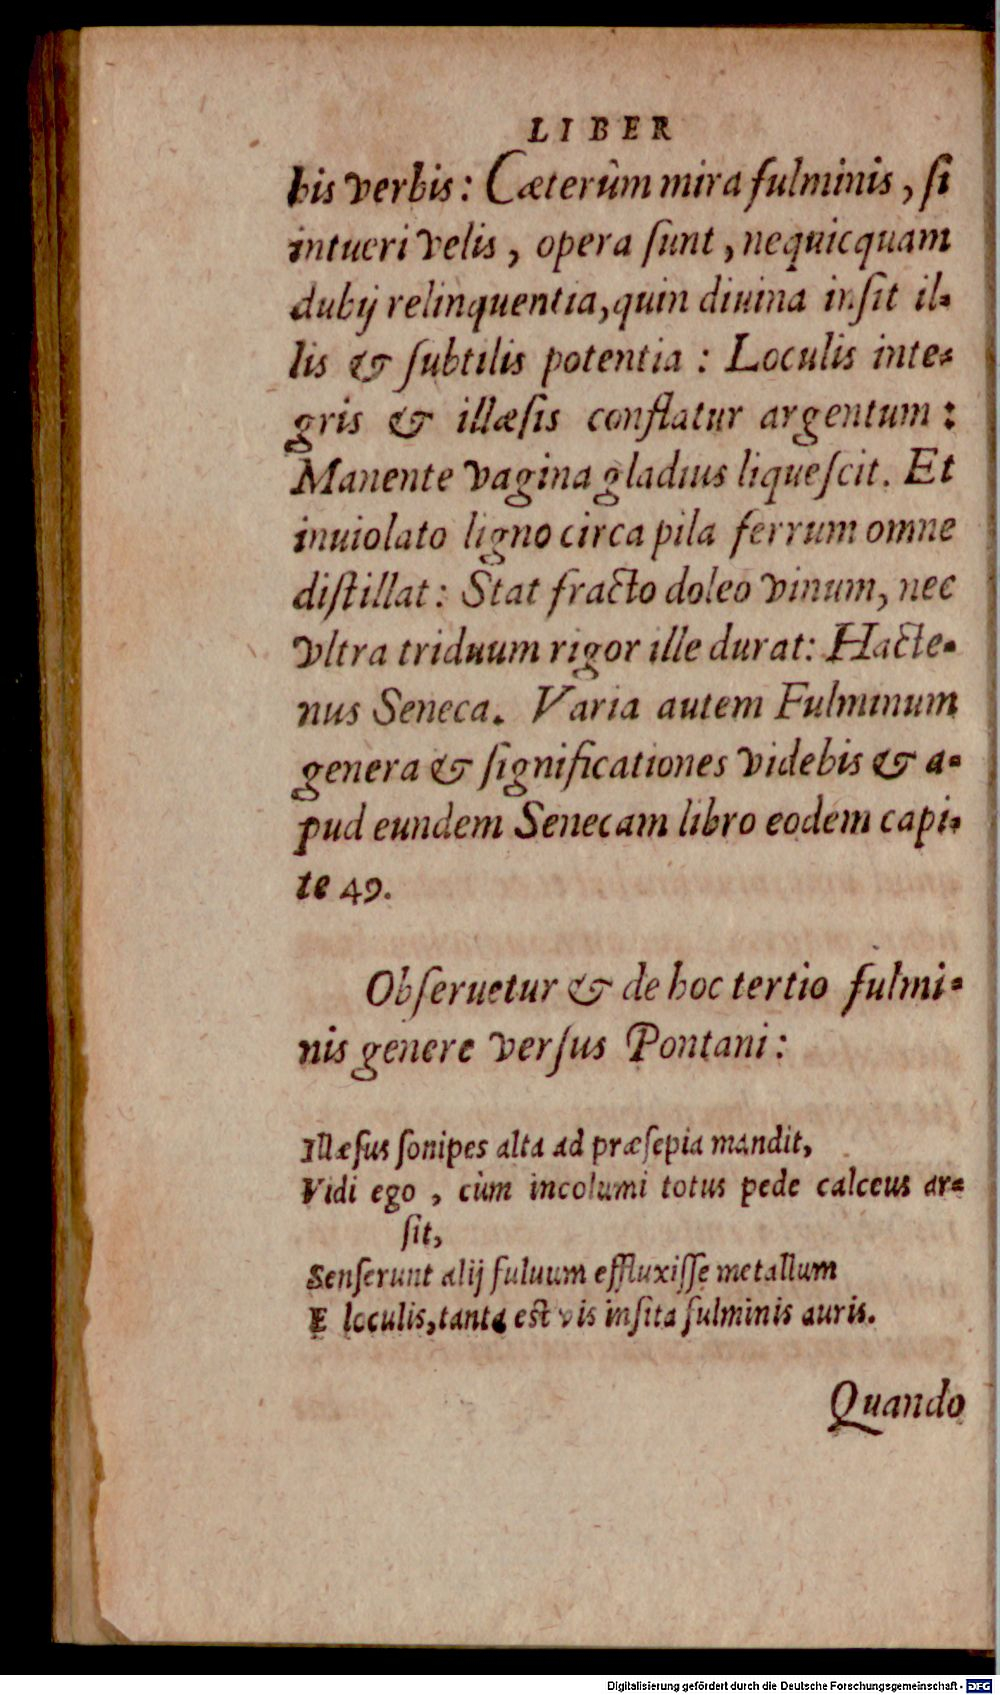 LIBER
bis verbis: Cæterùm mira fulminis, ſi
intueri velis, opera ſunt, nequicquam
dubij relinquentia, quin diuina inſit il-
lis & ſubtilis potentia: Loculis inte-
gris & illæſis conflatur argentum:
Manente vagina gladius liqueſcit. Et
inuiolato ligno circa pila ferrum omne
diſtillat: Stat fracto doleo vinum, nec
vltra triduum rigor ille durat: Hacte-
nus Seneca. Varia autem Fulminum
genera & ſignificationes videbis & a-
pud eundem Senecam libro eodem capi-
te 49.
Obſeruetur & de hoc tertio fulmi-
nis genere verſus Pontani:
Illæſus ſonipes alta ad præſepia mandit,
Vidi ego, cùm incolumi totus pede calceus ar-
ſit,
Senſerunt alij fuluum effluxiſſe metallum
E loculis, tanta est vis inſita fulminis auris.
Quando
Digitalisierung gefördert durch die Deutsche Forschungsgemeinschaft - DFG